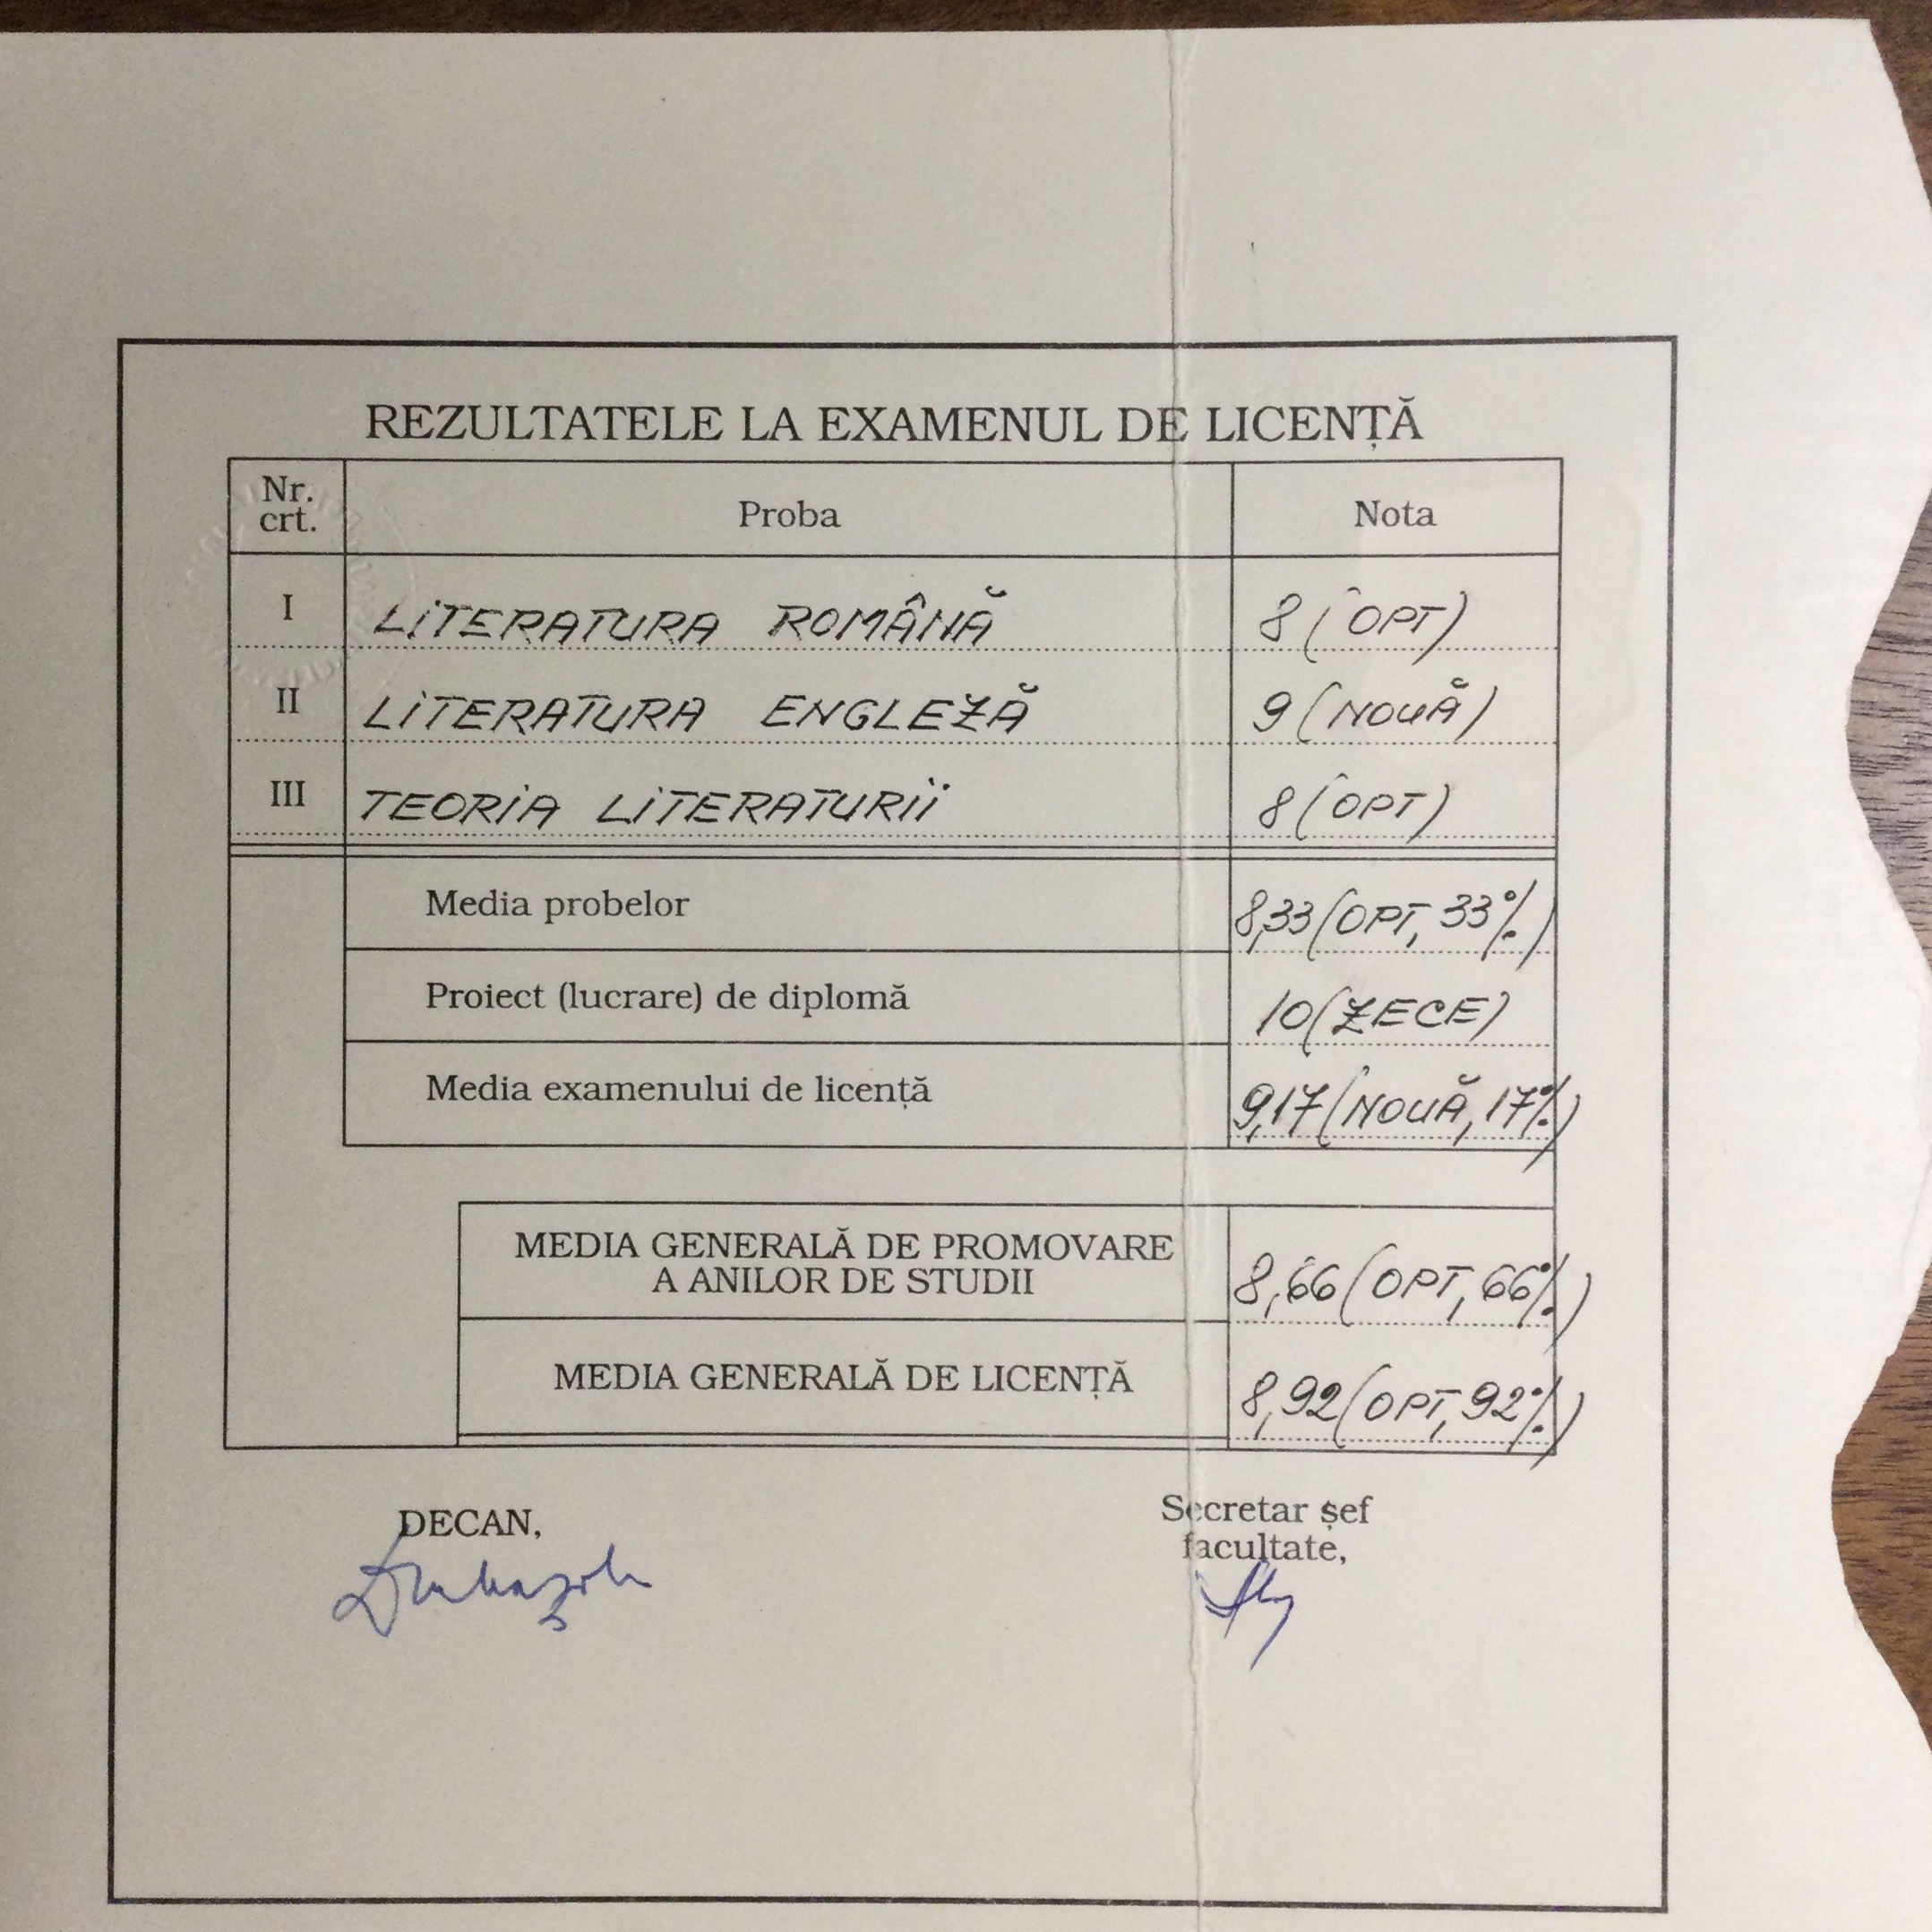 REZULTATELE LA EXAMENUL DE LICENȚĂ
Nr. crt. Proba Nota
I LITERATURA ROMÂNĂ 8 (OPT)
II LITERATURA ENGLEZĂ 9 (NOUĂ)
III TEORIA LITERATURII 8 (OPT)
Media probelor 8,33 (OPT, 33%)
Proiect (lucrare) de diplomă 10 (ZECE)
Media examenului de licență 9,17 (NOUĂ, 17%)
MEDIA GENERALĂ DE PROMOVARE
A ANILOR DE STUDII 8,66 (OPT, 66%)
MEDIA GENERALĂ DE LICENȚĂ 8,92 (OPT, 92%)
DECAN,
Secretar șef
facultate,